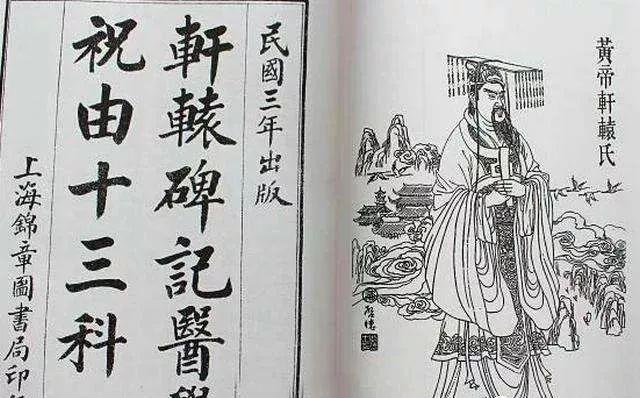 黃帝軒轅氏
民國三年出版
軒轅碑記醫學
祝由十三科
上海錦章圖書局印